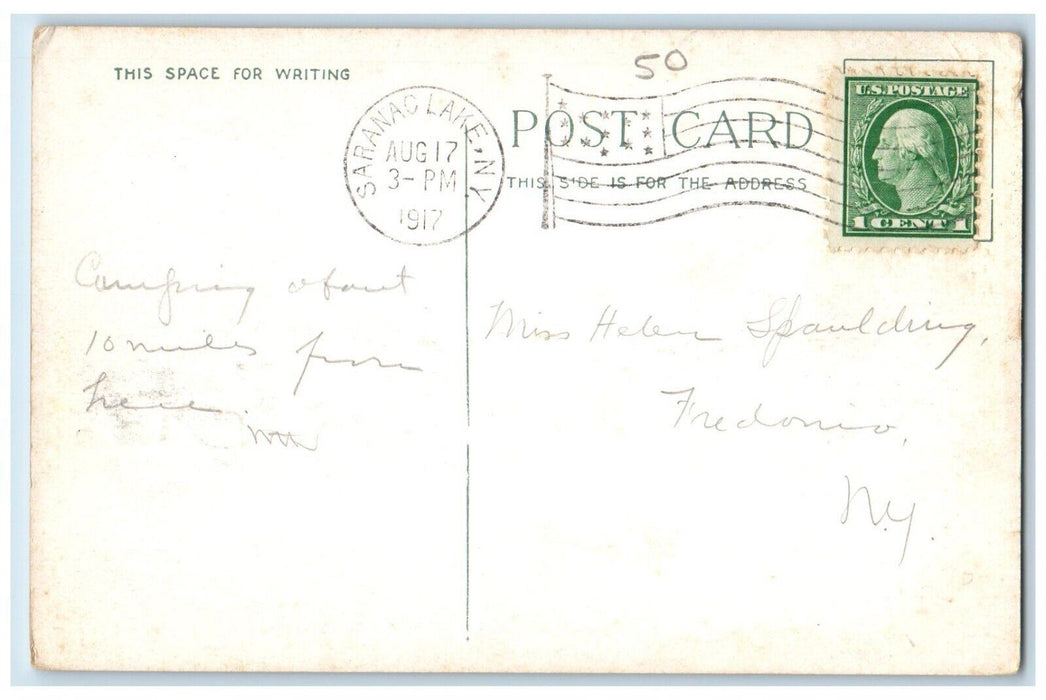 THIS SPACE FOR WRITING
50
SARANAC LAKE, N.Y.
AUG 17
3-PM
1917
POST CARD
THIS SIDE IS FOR THE ADDRESS
U.S. POSTAGE
1 CENT 1
Camping about
10 miles from
here.
Miss Helen Spaulding,
Fredonia,
N.Y.